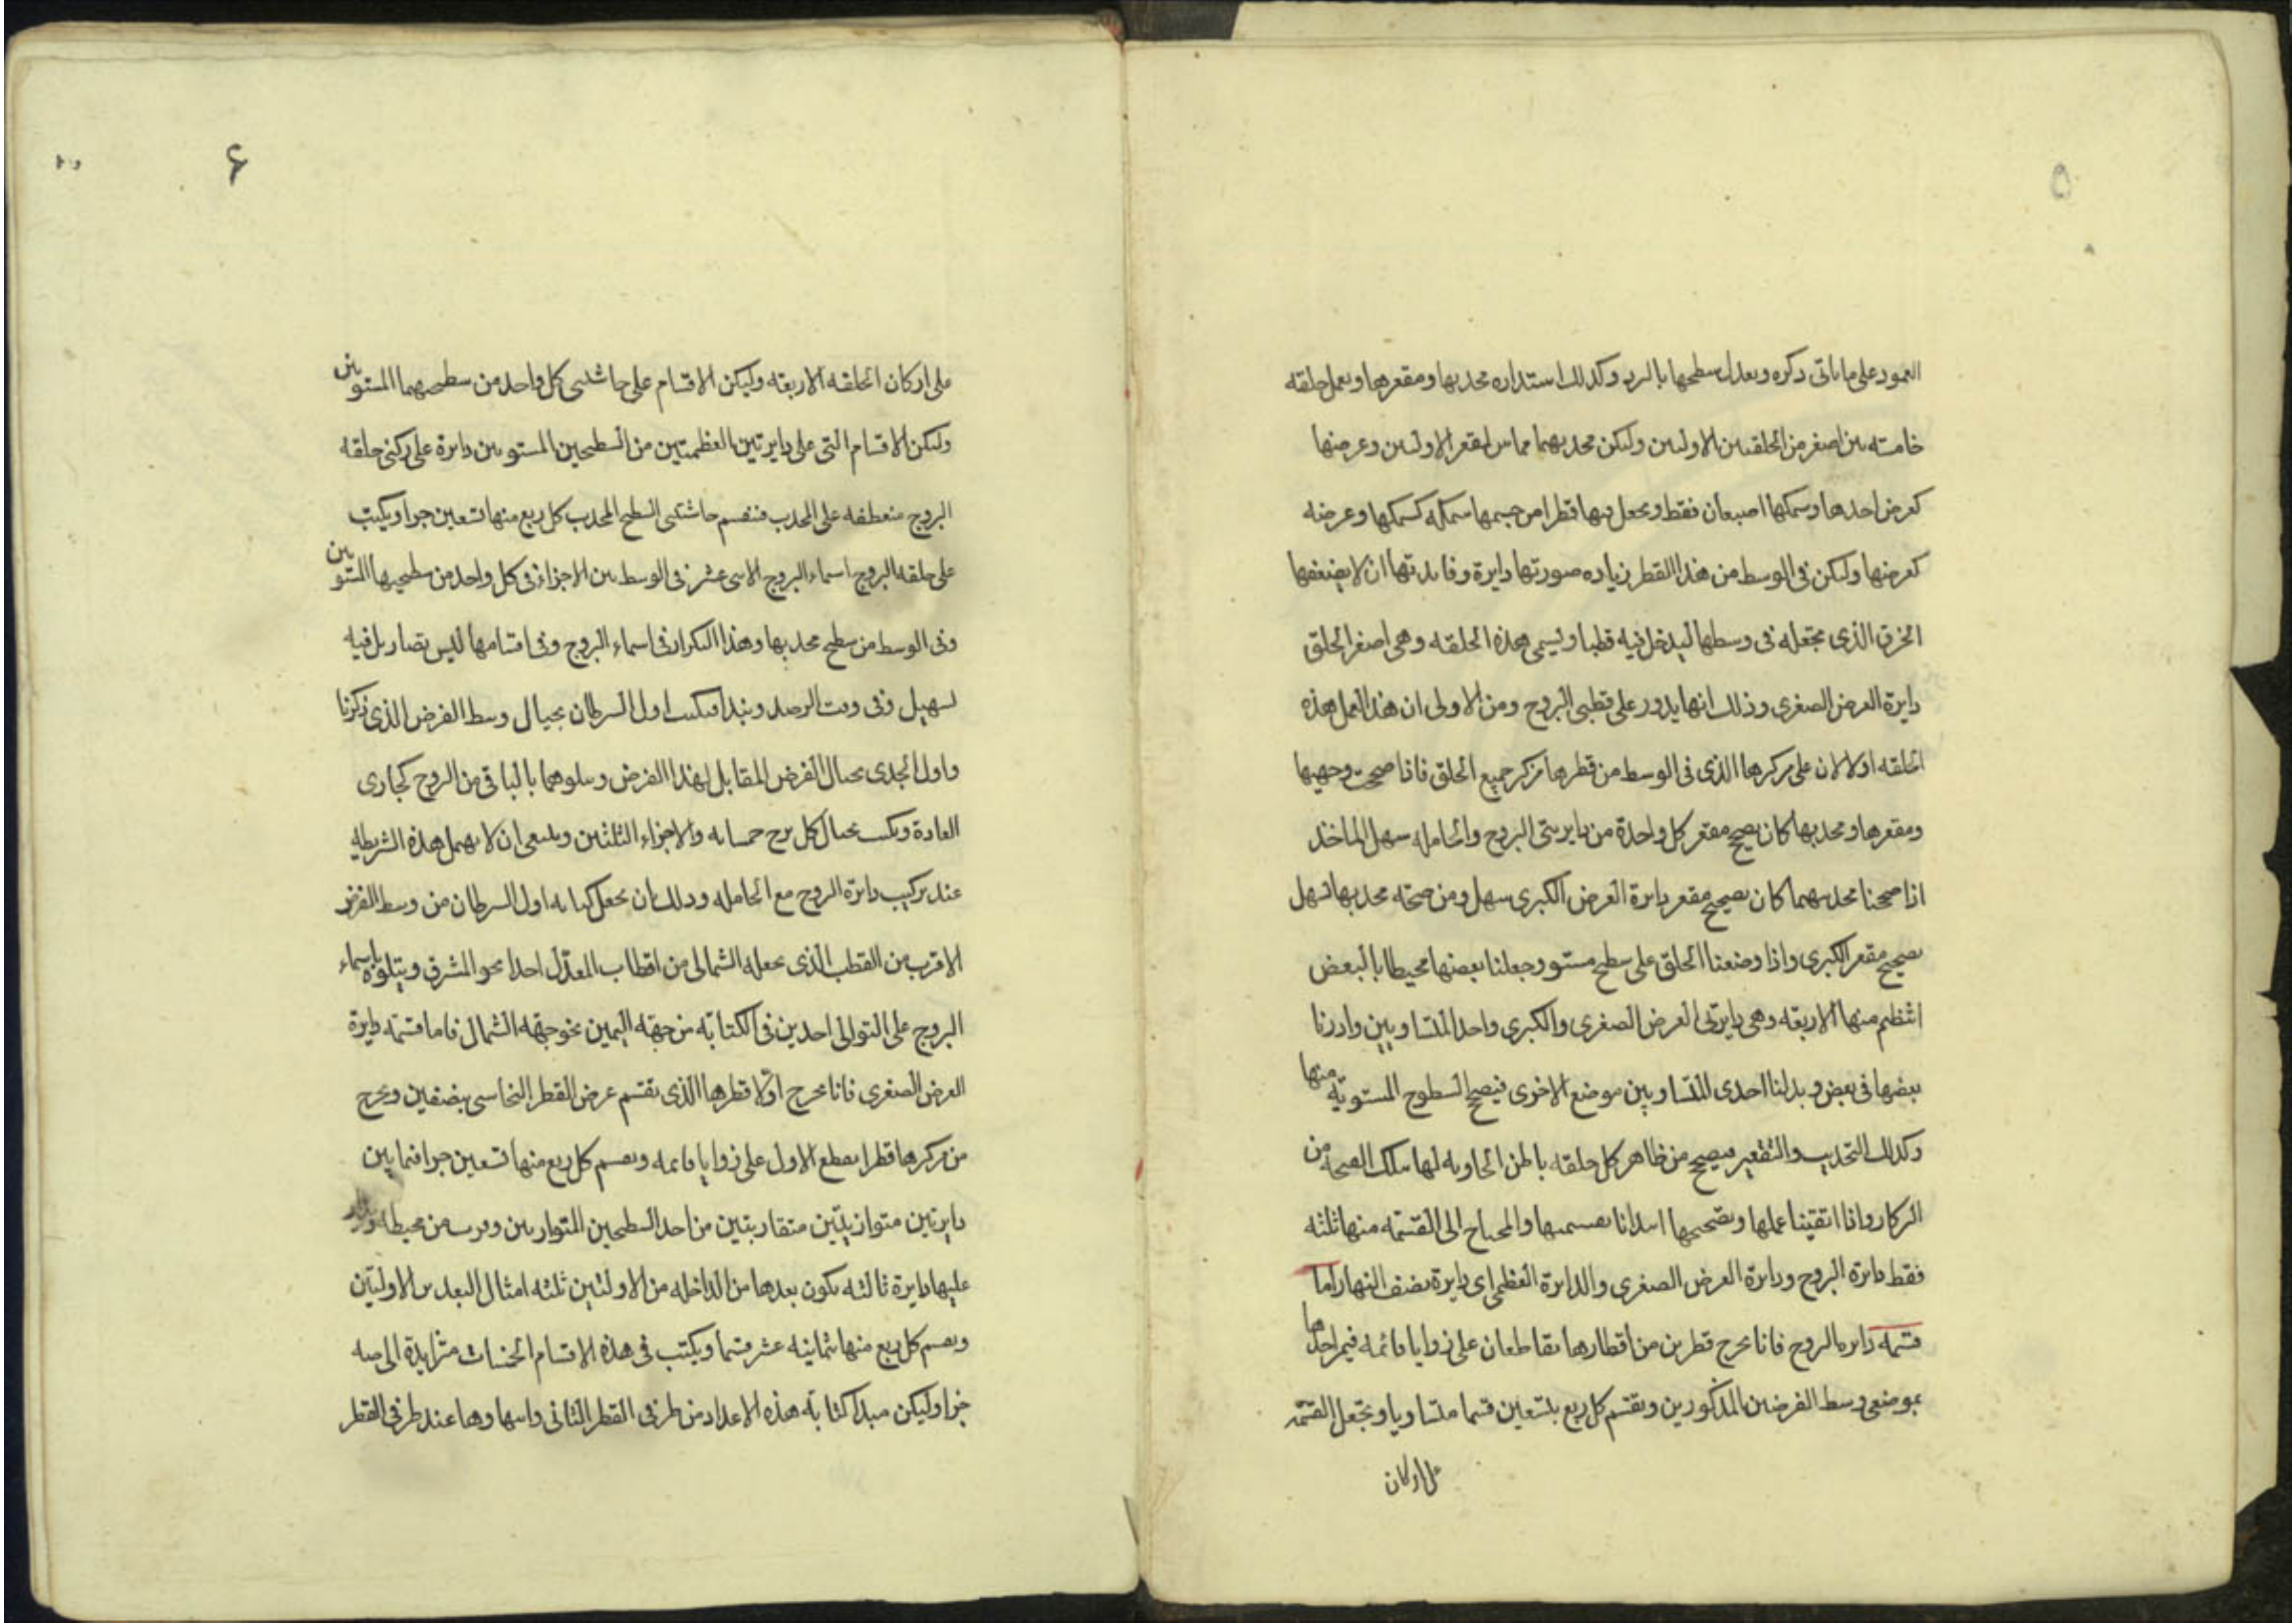 ٥
العمود على ما ياتى ذكره ويعدل سطحها بالبرد وكذلك استداره محدبها ومقعرها ويعمل حلقه
خامسته بين اصغر من الحلقتين الاولتين ولكن محدبهما مماس لمقعر الاولتين وعرضها
كعرض احدها وسمكها اصبعان فقط ويجعل فيها قطرا من جسمها سمكه كسمكها وعرضه
كعرضها وليكن فى الوسط من هذا القطر زياده صورتها دايرة وفايدتها ان لا يضعفها
الخرق الذى نجعله فى وسطها ليدخل فيه قطبا ويسمى هذه الحلقه وهى اصغر الحلق
دايرة العرض الصغرى وذلك انها يدور على قطبى البروج ومن الاولى ان هذا العمل هذه
الحلقه اولا لان على مركزها الذى فى الوسط من قطرها مركز جميع الحلق فاذا صححت وجهيها
ومقعرها ومحدبها كان يصحح مقعر كل واحدة من دايرتى البروج والحامله سهل الماخذ
اذا صححنا محدبهما كان يصحيح مقعر دايرة العرض الكبرى سهل ومن صحته محدبها تسهل
تصحيح مقعر الكبرى واذا وضعنا الحلق على سطح مستو وجعلنا بعضها محيطا بالبعض
انتظم منها الاربعه وهى دايرتى العرض الصغرى والكبرى واحد المتساويين وادرنا
بعضها فى بعض وبدلنا احدى المتساويين موضع الاخرى فيصح السطوح المستويه منها
وكذلك التحديب والتقعير فيصحح من ظاهر كل حلقه باطن الحاويه لها بتلك الصحه من
البركار واذا اتقينا عملها وتصحيحها ابتدانا بقسمتها والمحتاج الى القسمته منها ثلثه
فقط دايرة البروج ودايرة العرض الصغرى والدايرة العظمى اى دايرة نصف النهار اما
قسمه دايره البروج فانا نخرج قطرين من اقطارها يتقاطعان على زوايا قائمه فيمر احدها
بموضعى وسط الفرضين المذكورين ونقسم كل ربع بتسعين قسما متساويا ونجعل القسمه
على اركان
۶
على اركان الحلقه الاربعه وليكن الاقسام على حاشيتى كل واحد من سطحيهما المستويين
وليكن الاقسام التى على دايرتين العظمتين من السطحين المستويين دايرة على ركنى حلقه
البروج منعطفه على المحدب فنقسم حاشيتى السطح المحدب كل ربع منها تسعين جزا ويكتب
على حلقه البروج اسماء البروج الاثنى عشر فى الوسط بين الاجزاء فى كل واحد من سطحيها المستويين
وفى الوسط من سطح محدبها وهذا التكرار فى اسماء البروج وفى اقسامها ليس بضار بل فيه
تسهيل وفى وقت الرصد ونبدا فنكتب اول السرطان بحيال وسط الفرض الذى ذكرنا
واول الجدى بحيال الفرض المقابل لهذا الفرض ويتلوهما بالباقى من البروج كجارى
العادة ونكتب بحيال كل برج خمساته والاجزاء الثلثين وينبغى ان لا يهمل هذه الشريطه
عند تركيب دايرة البروج مع الحامله وذلك بان نجعل كتابه اول السرطان من وسط الفرض
الاقرب من القطب الذى نجعله الشمالى من اقطاب المعدّل احدا نحو المشرق ويتلوه باسماء
البروج على التوالى احدين فى الكتابة من جهة اليمين نحو جهه الشمال فاما قسمته دايرة
العرض الصغرى فانا نخرج اوّلا قطرها الذى نقسم عرض القطر النحاسى بضفين ونخرج
من مركزها قطرا يقطع الاول على زوايا قايمه ونقسم كل ربع منها تسعين جزا فيما بين
دايرتين متوازيتين متقاربتين من احد السطحين المتوازيين وقريب من محيطه
عليها دايرة ثالثه يكون بعدها من الداخله من الاولتين ثلثه امثال البعد بين الاولتين
ونقسم كل ربع منها ثمانيه عشر قسما ويكتب فى هذه الاقسام الخمسات متزايدة الى ص
جزا وليكن مبدا كتابة هذه الاعداد من طرفى القطر الثانى وانتهاوها عند طرفى القطر